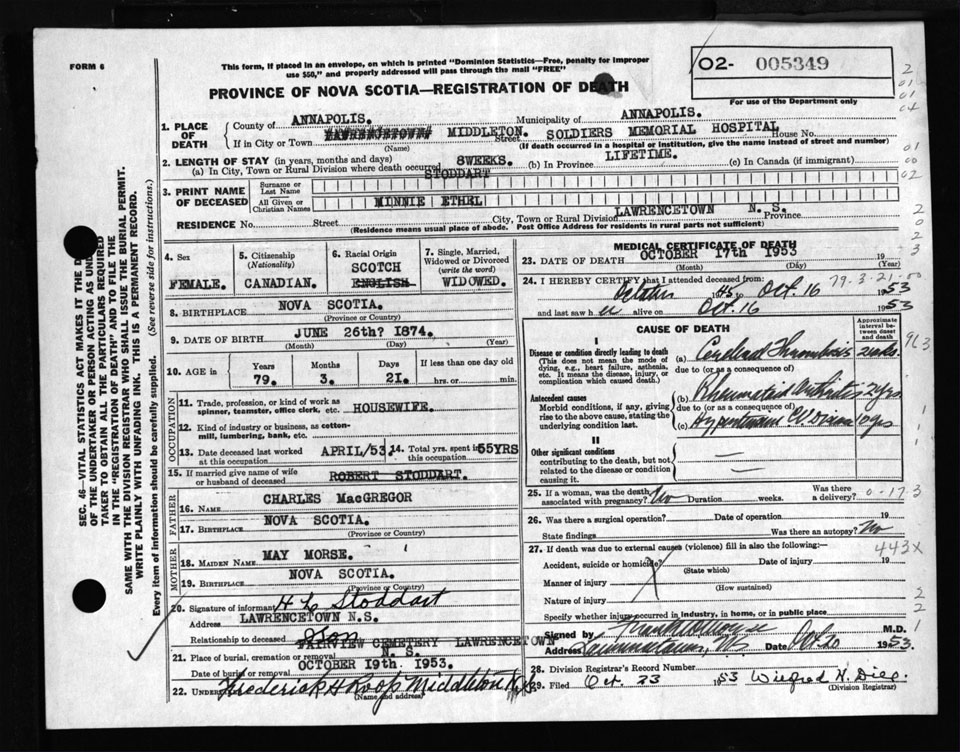 FORM 6
This form, if placed in an envelope, on which is printed "Dominion Statistics—Free, penalty for improper
use $50," and properly addressed will pass through the mail "FREE"
O2- 005349
For use of the Department only
PROVINCE OF NOVA SCOTIA—REGISTRATION OF DEATH
1. PLACE OF DEATH
County of ANNAPOLIS. Municipality of ANNAPOLIS.
If in City or Town LAWRENCETOWN MIDDLETON. Street SOLDIERS MEMORIAL HOSPITAL House No.
(Name) (If death occurred in a hospital or institution, give the name instead of street and number)
2. LENGTH OF STAY (in years, months and days)
(a) In City, Town or Rural Division where death occurred 8WEEKS. (b) In Province LIFETIME. (c) In Canada (if immigrant)
3. PRINT NAME OF DECEASED
Surname or Last Name STODDART
All Given or Christian Names MINNIE ETHEL
RESIDENCE No. Street City, Town or Rural Division LAWRENCETOWN N. S. Province
(Residence means usual place of abode. Post Office Address for residents in rural parts not sufficient)
4. Sex
FEMALE.
5. Citizenship (Nationality)
CANADIAN.
6. Racial Origin
SCOTCH
ENGLISH
7. Single, Married, Widowed or Divorced (write the word)
WIDOWED.
8. BIRTHPLACE NOVA SCOTIA.
(Province or Country)
9. DATE OF BIRTH JUNE 26th? 1874.
(Month) (Day) (Year)
10. AGE in
Years Months Days If less than one day old
79. 3. 21. hrs. or min.
OCCUPATION
11. Trade, profession, or kind of work as spinner, teamster, office clerk, etc. HOUSEWIFE.
12. Kind of industry or business, as cotton-mill, lumbering, bank, etc.
13. Date deceased last worked at this occupation APRIL/53.
14. Total yrs. spent in this occupation 55YRS
15. If married give name of wife or husband of deceased ROBERT STODDART.
FATHER
16. Name CHARLES MacGREGOR
17. Birthplace NOVA SCOTIA.
(Province or Country)
MOTHER
18. Maiden Name MAY MORSE.
19. Birthplace NOVA SCOTIA.
(Province or Country)
20. Signature of informant H L Stoddart
Address LAWRENCETOWN N.S.
Relationship to deceased Son
21. Place of burial, cremation or removal FAIRVIEW CEMETERY LAWRENCETOWN N. S.
Date of burial or removal OCTOBER 19th. 1953.
22. Undertaker Frederick H Roop Middleton N.S.
(Name and address)
MEDICAL CERTIFICATE OF DEATH
23. DATE OF DEATH OCTOBER 17th 1953 19
(Month) (Day) (Year)
24. I HEREBY CERTIFY that I attended deceased from:
to Oct. 16 1953
79-3-21-00
and last saw h er alive on Oct. 16 1953
CAUSE OF DEATH
Approximate interval between onset and death
I
Disease or condition directly leading to death
(This does not mean the mode of dying, e.g., heart failure, asthenia, etc. It means the disease, injury, or complication which caused death.)
(a) Cerebral Thrombosis
due to (or as a consequence of)
Antecedent causes
Morbid conditions, if any, giving rise to the above cause, stating the underlying condition last.
(b) Rheumatoid Arthritis
due to (or as a consequence of)
(c) Hypertensive
II
Other significant conditions
contributing to the death, but not related to the disease or condition causing it.
25. If a woman, was the death associated with pregnancy? No Duration weeks. Was there a delivery?
0-17 3
26. Was there a surgical operation? Date of operation 19
State findings Was there an autopsy? No
27. If death was due to external causes (violence) fill in also the following:—
443X
Accident, suicide or homicide? Date of injury 19
(State which)
Manner of injury
(How sustained)
Nature of injury
Specify whether injury occurred in industry, in home, or in public place
Signed by M.D.
Address Date 1953.
28. Division Registrar's Record Number
29. Filed Oct. 23 1953 Wilfred H.
(Division Registrar)
SEC. 46—VITAL STATISTICS ACT MAKES IT THE
OF THE UNDERTAKER OR PERSON ACTING AS
TAKER TO OBTAIN ALL THE PARTICULARS REQUIRED
IN THE "REGISTRATION OF DEATH" AND TO FILE THE
SAME WITH THE DIVISION REGISTRAR WHO SHALL ISSUE THE BURIAL PERMIT.
WRITE PLAINLY WITH UNFADING INK. THIS IS A PERMANENT RECORD.
Every item of information should be carefully supplied. (See reverse side for instructions.)